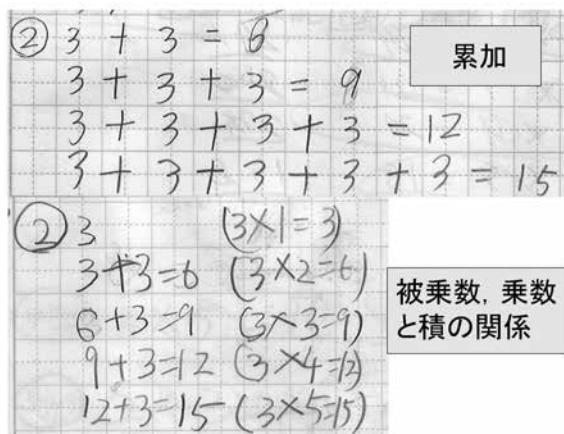 ② 3 + 3 = 6
3 + 3 + 3 = 9
3 + 3 + 3 + 3 = 12
3 + 3 + 3 + 3 + 3 = 15
累加
② 3 (3×1=3)
3+3=6 (3×2=6)
6+3=9 (3×3=9)
9+3=12 (3×4=12)
12+3=15 (3×5=15)
被乗数，乗数
と積の関係